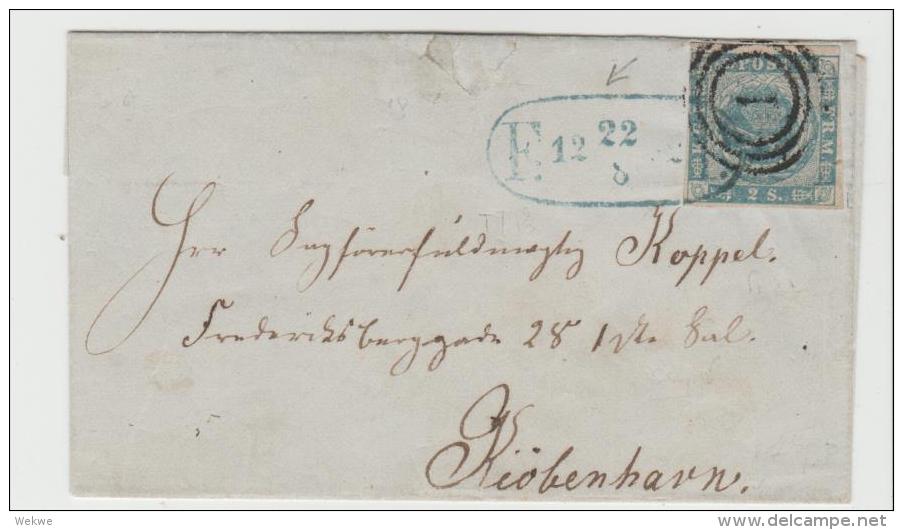 POST
F. 12 22
8
1
F. R. M.
2 S.
Herr Sagförerfuldmægtig Koppel.
Frederiksberggade 28 1ste Sal.
Kiöbenhavn.
Wekwe
www.delcampe.net